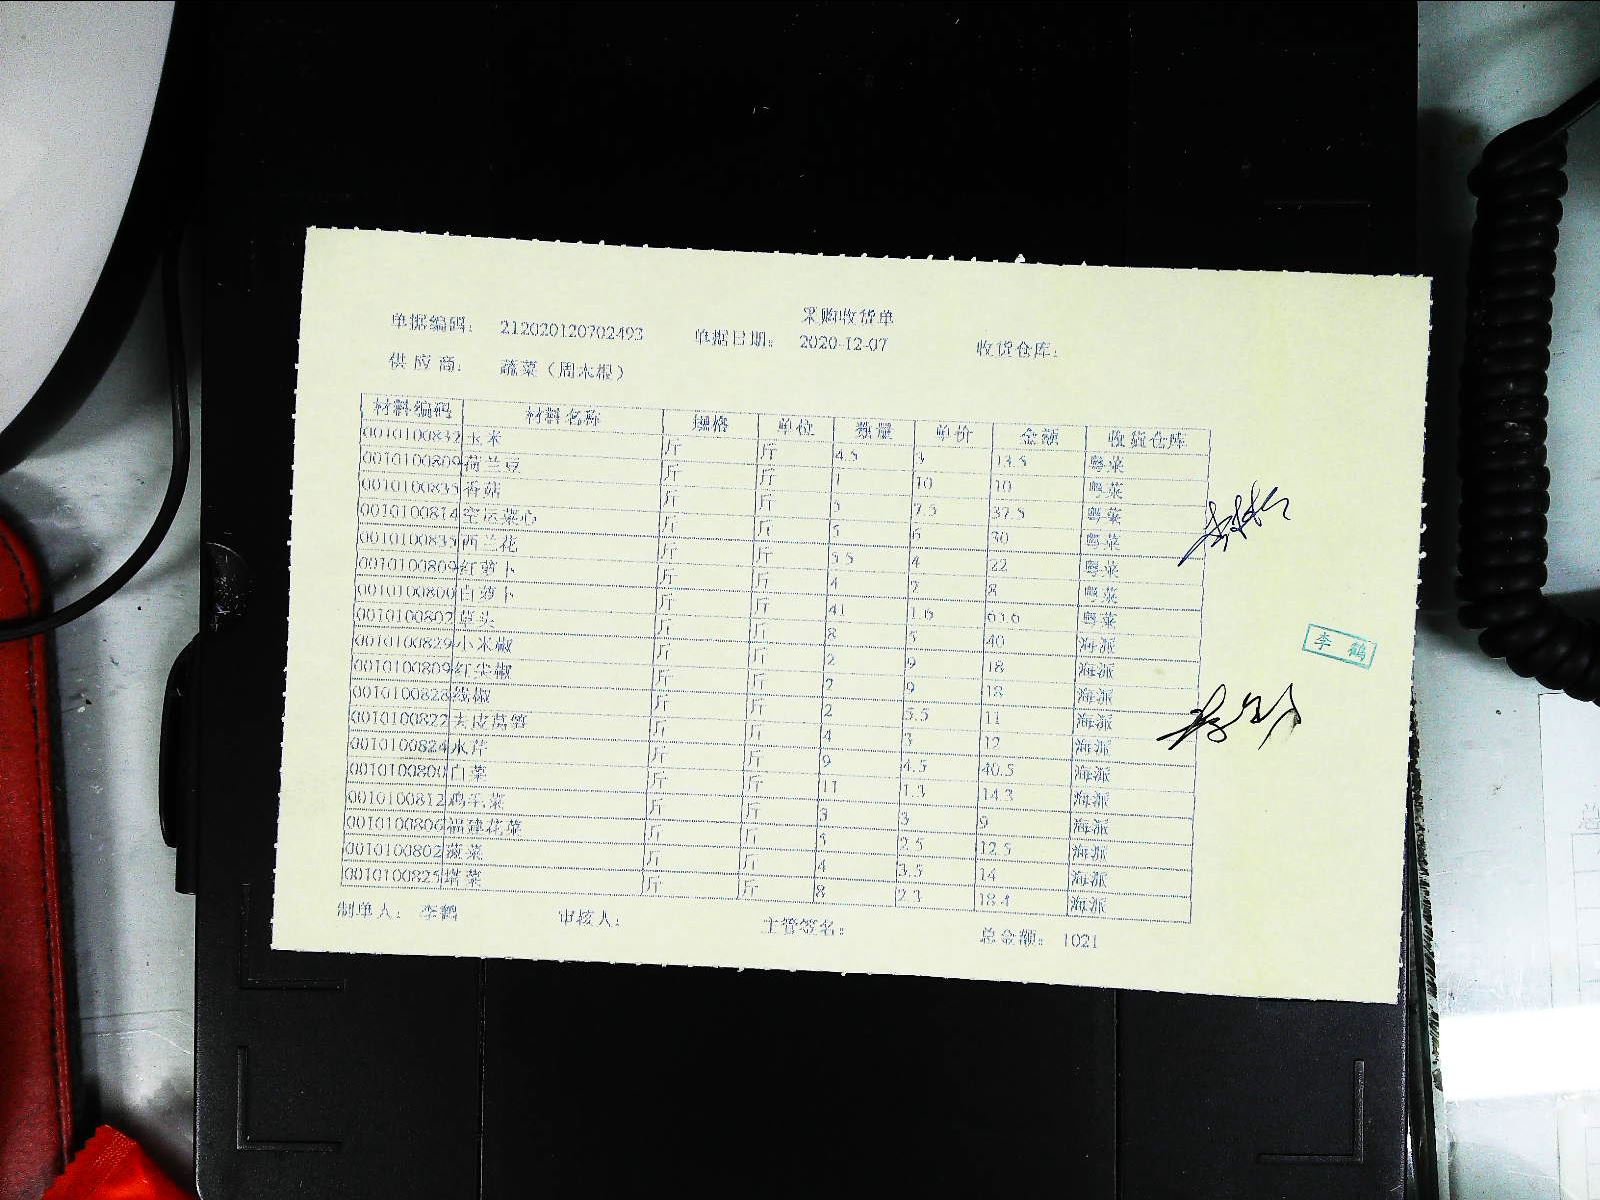 采购收货单
单据编码: 212020120702493 单据日期: 2020-12-07 收货仓库:
供应商: 蔬菜（周木根）
材料编码 材料名称 规格 单位 数量 单价 金额 收货仓库
0010100832 玉米 斤 斤 4.5 3 13.5 粤菜
0010100809 荷兰豆 斤 斤 1 10 10 粤菜
0010100835 香菇 斤 斤 5 7.5 37.5 粤菜
0010100814 空运菜心 斤 斤 5 6 30 粤菜
0010100835 西兰花 斤 斤 5.5 4 22 粤菜
0010100809 红萝卜 斤 斤 4 2 8 粤菜
0010100800 白萝卜 斤 斤 41 1.6 65.6 粤菜
0010100802 草头 斤 斤 8 5 40 海派
0010100829 小米椒 斤 斤 2 9 18 海派
0010100809 红尖椒 斤 斤 2 9 18 海派
0010100828 线椒 斤 斤 2 5.5 11 海派
0010100822 去皮莴笋 斤 斤 4 3 12 海派
0010100824 水芹 斤 斤 9 4.5 40.5 海派
0010100800 白菜 斤 斤 11 1.3 14.3 海派
0010100812 鸡毛菜 斤 斤 3 3 9 海派
0010100806 福建花菜 斤 斤 5 2.5 12.5 海派
0010100802 菠菜 斤 斤 4 3.5 14 海派
0010100825 塔菜 斤 斤 8 2.3 18.4 海派
制单人: 李鹤 审核人: 主管签名: 总金额: 1021
李鹤